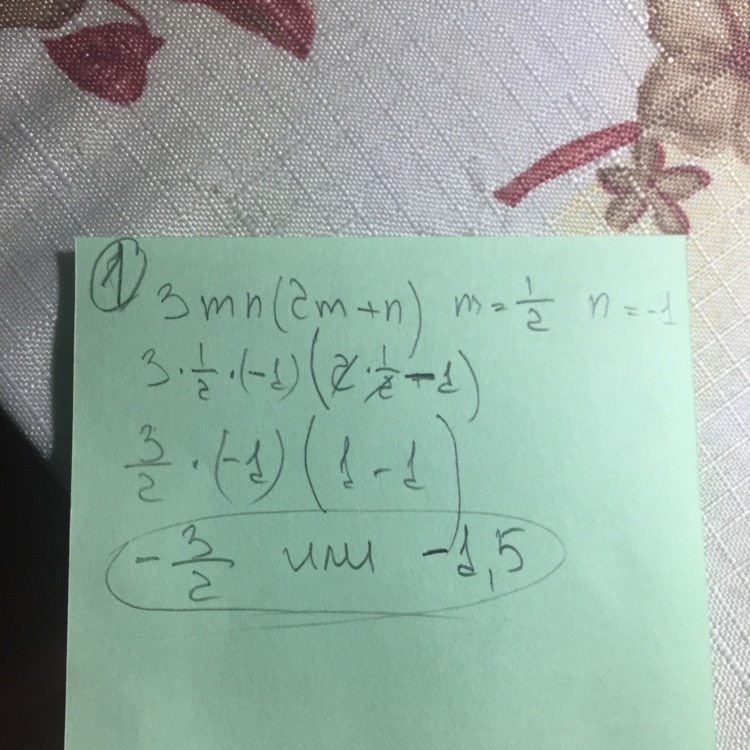 ① 3mn(2m+n) m=1/2 n=-1
3·1/2·(-1)(2·1/2-1)
3/2·(-1)(1-1)
-3/2 или -1,5